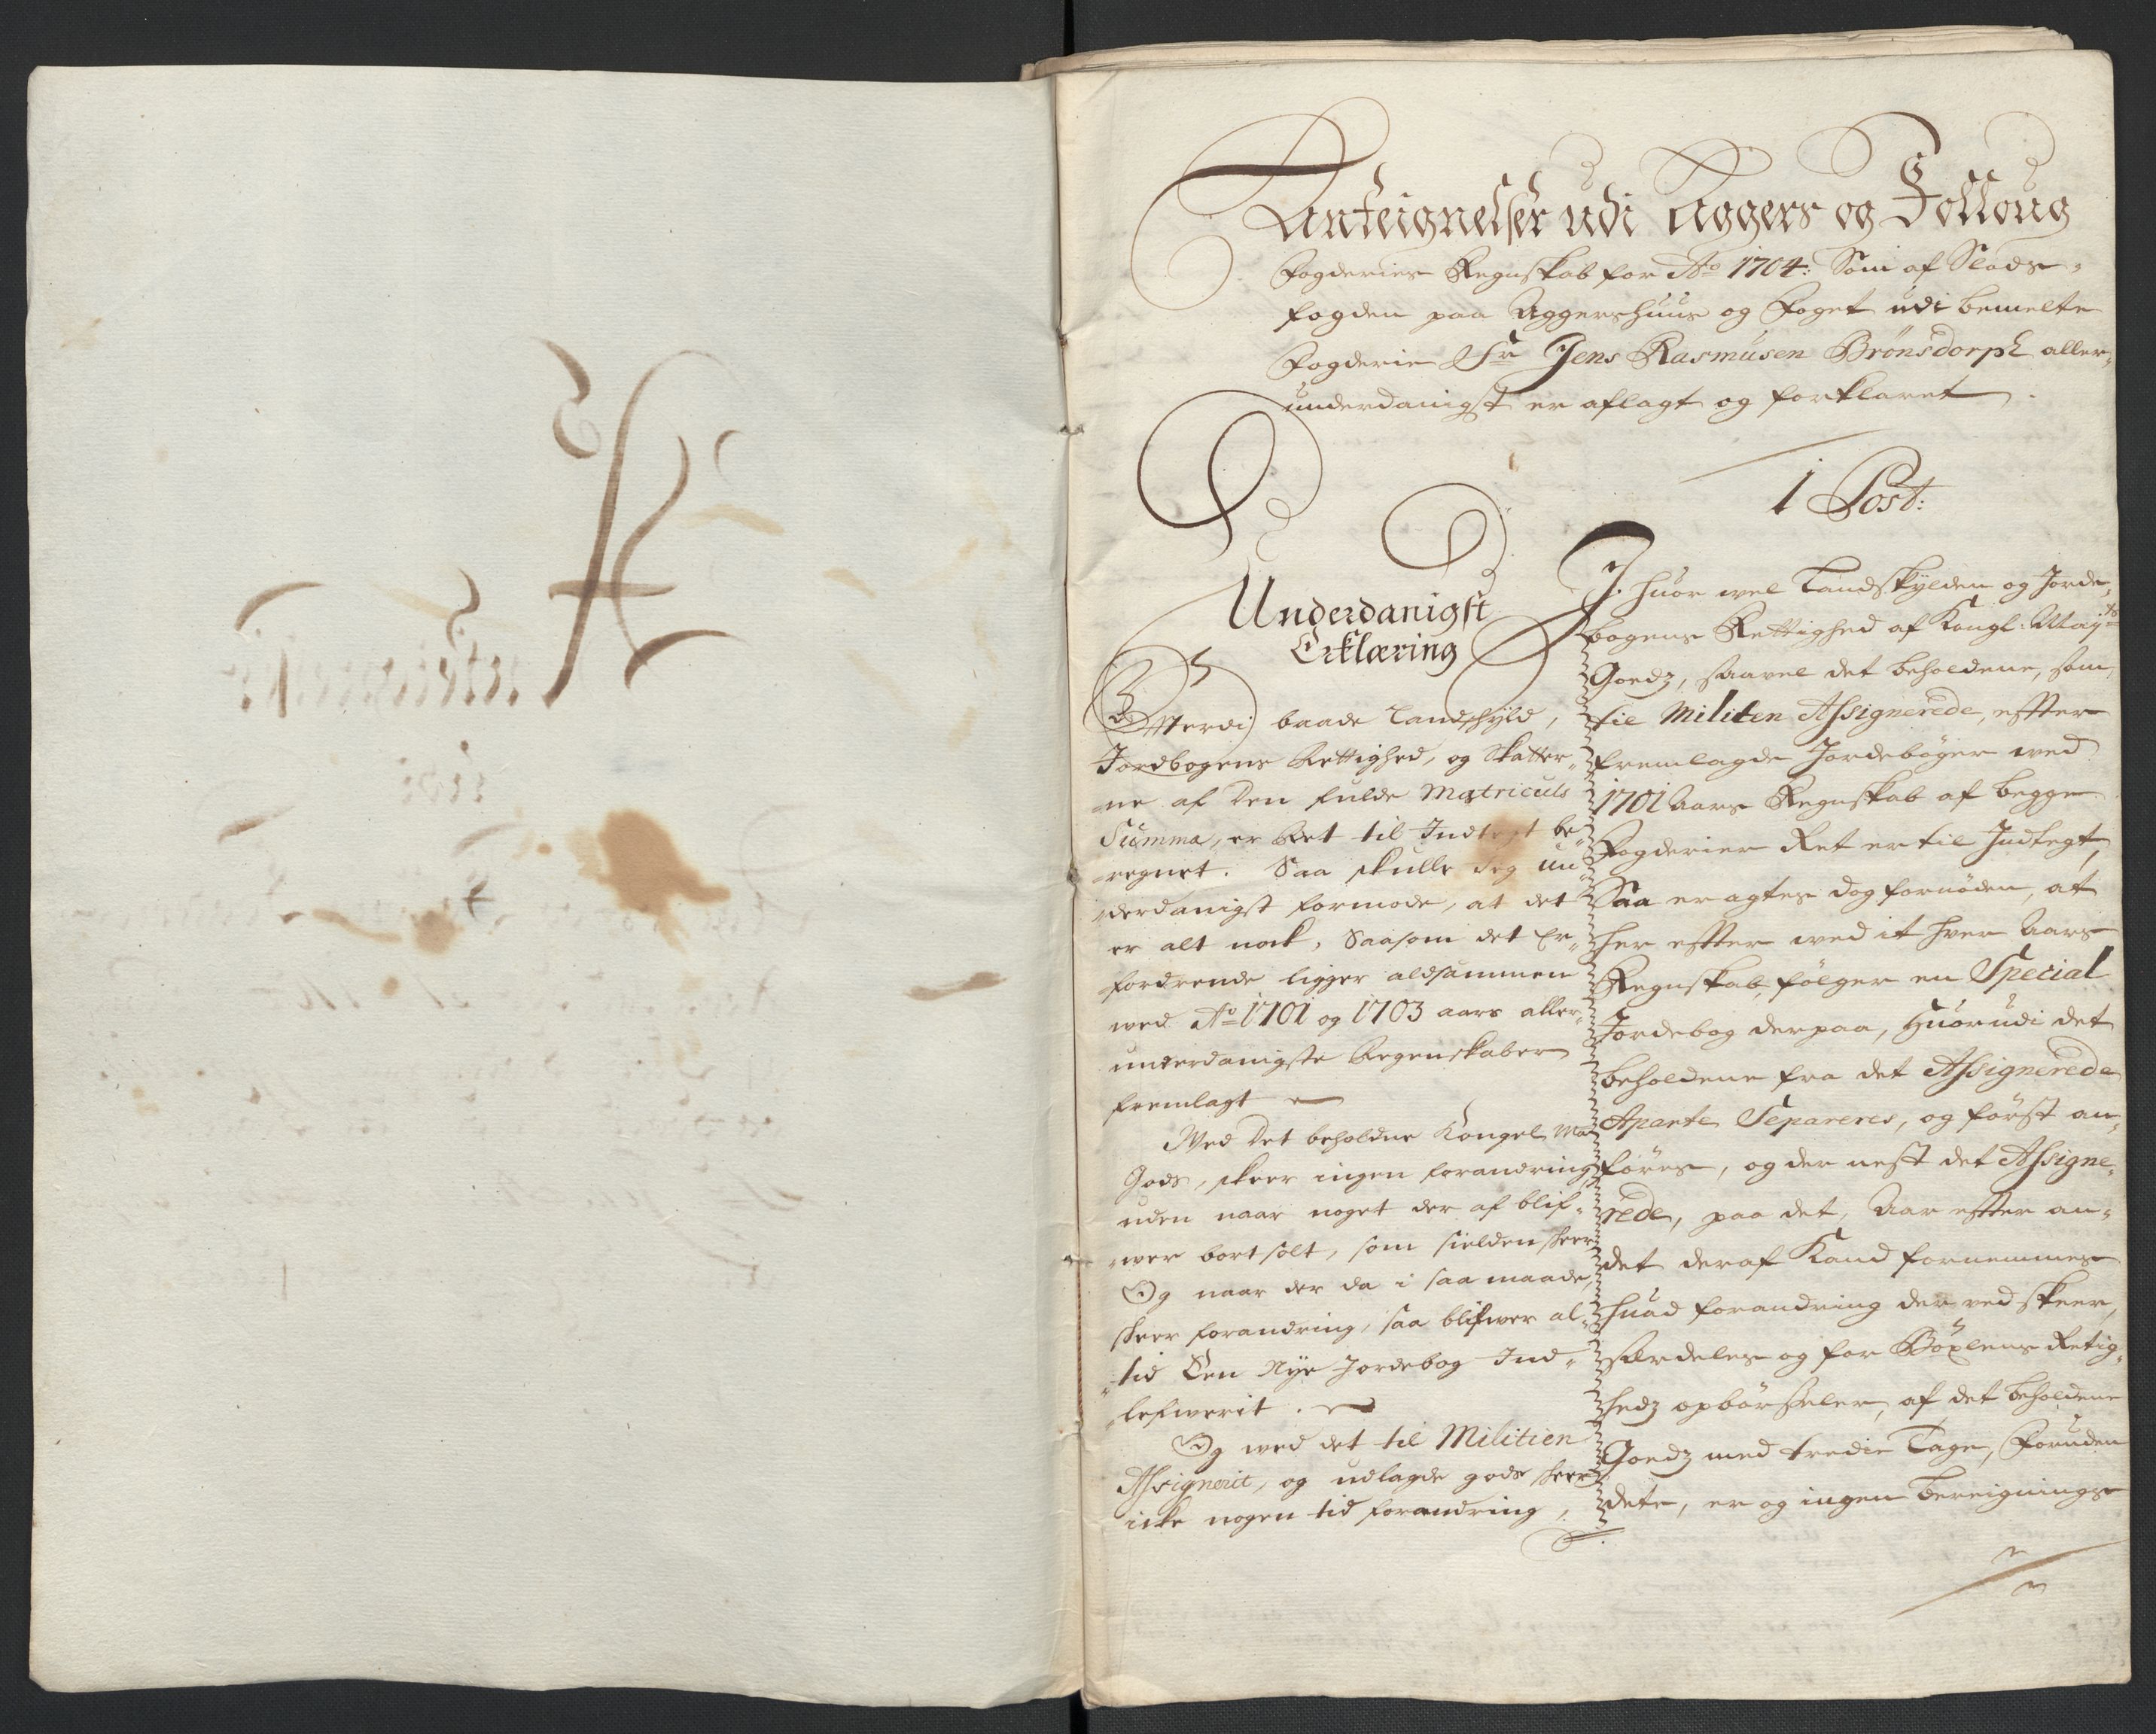 Anteignelser udi Aggers og Folloug
Fogderies Regnskab for Ao 1704: Som af Slods-
fogden paa Aggershuus og Foget udi bemelte
Fogderie Sr Jens Rasmusen Brönsdorph aller-
underdanigst er aflagt og forklaret
1 Post:
Underdanigst
Erklæring
Efftterdj baade Landskyld,
Jordbogens Rettighed, og Skatter-
ne af den fulde Matriculs
Summa, er Ret til Indtegt be-
regnet. Saa skulle Jeg un-
derdanigst formode, at det
er alt nock, Saasom det Er-
fordrende ligger aldsammen
wed Ao 1701 og 1703 aars aller-
underdanigste Regenskaber
fremlagt
Wed det beholdne Kongel. Ma
Gods, skeer ingen forandring
uden naar noget der af blif-
wer bort solt, som sielden skeer
Og naar der da i saa maade
skeer forandring, saa blifwer al-
tid Een Nye Jordebog Ind-
lefwerit.
Og wed det til Militien
Assignerit, og udlagde gods skeer
icke nogen tid forandring,
I huor wel Landskylden og Jorde-
bogens Rettighed af Kongl: Mayts
Goedz, saavel det beholdene, som
til Militen Assignerede, effter
fremlagde Jordebøger wed
1701 Aars Regnskab af begge
Fogderier Ret er til Indtegt,
Saa er agtes dog fornøden, at
her effter wed it hver Aars
Regnskab, følger en Special
Jordebog derpaa, Huorudi det
beholdene fra det Assignerede
Aparte Separeres, og først an-
føres, og der nest det Assigne-
rede, paa det, Aar effter an-
det deraf Kand fornemmes
huad forandring der ved skeer,
særdeles og for Böxlens Retig-
hedz opbørseler, af det beholdene
Goedz med tredie Tage, Foruden
dete, er og ingen Bereignings